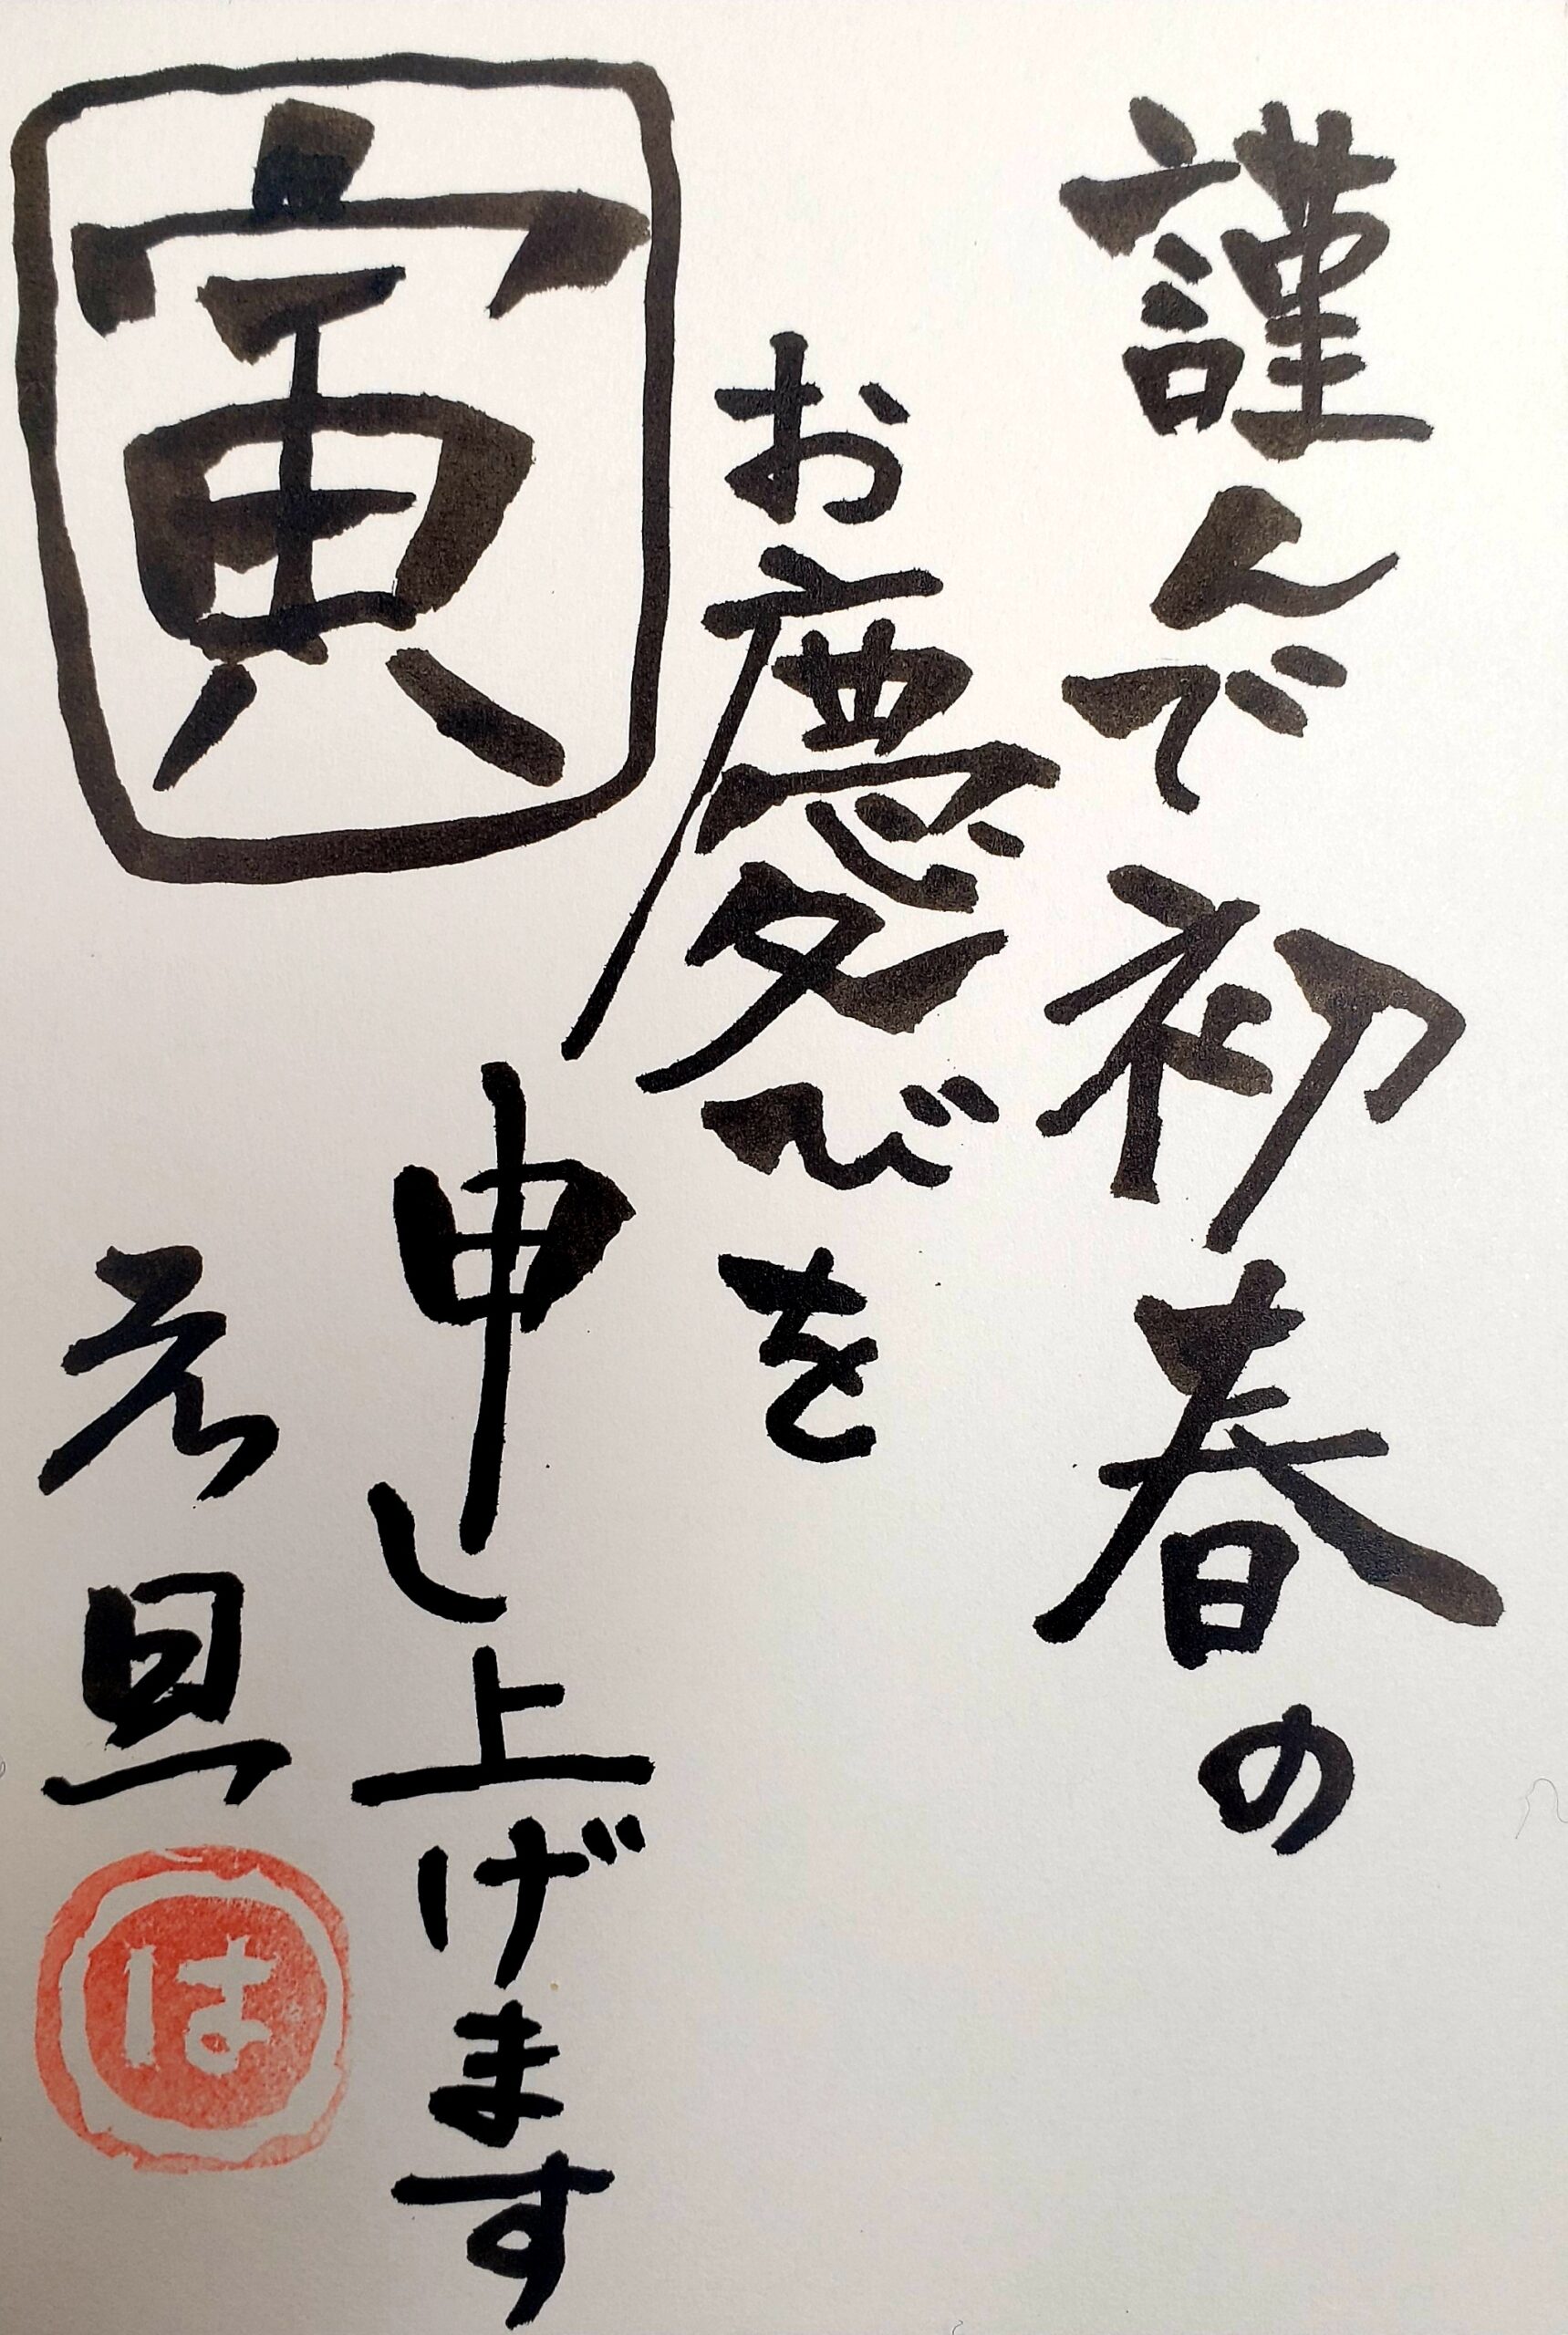 謹んで初春の
お慶びを
申し上げます
寅
元旦
は